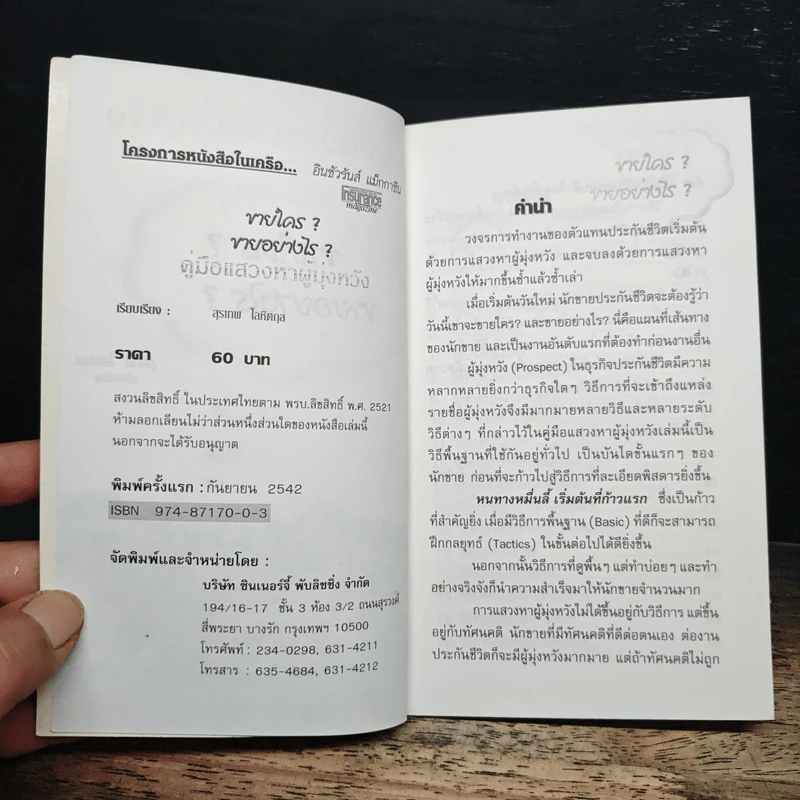 โครงการหนังสือในเครือ... อินชัวรันส์ แม็กกาซีน
Insurance
magazine
ขายใคร ?
ขายอย่างไร ?
คู่มือแสวงหาผู้มุ่งหวัง
เรียบเรียง : สุรเทพ โลหิตกุล
ราคา 60 บาท
สงวนลิขสิทธิ์ ในประเทศไทยตาม พรบ.ลิขสิทธิ์ พ.ศ. 2521
ห้ามลอกเลียนไม่ว่าส่วนหนึ่งส่วนใดของหนังสือเล่มนี้
นอกจากจะได้รับอนุญาต
พิมพ์ครั้งแรก : กันยายน 2542
ISBN 974-87170-0-3
จัดพิมพ์และจำหน่ายโดย :
บริษัท ซินเนอร์จี้ พับลิชชิ่ง จำกัด
194/16-17 ชั้น 3 ห้อง 3/2 ถนนสุรวงศ์
สี่พระยา บางรัก กรุงเทพฯ 10500
โทรศัพท์ : 234-0298, 631-4211
โทรสาร : 635-4684, 631-4212
ขายใคร ?
ขายอย่างไร ?
คำนำ
วงจรการทำงานของตัวแทนประกันชีวิตเริ่มต้น
ด้วยการแสวงหาผู้มุ่งหวัง และจบลงด้วยการแสวงหา
ผู้มุ่งหวังให้มากขึ้นซ้ำแล้วซ้ำเล่า
เมื่อเริ่มต้นวันใหม่ นักขายประกันชีวิตจะต้องรู้ว่า
วันนี้เขาจะขายใคร? และขายอย่างไร? นี่คือแผนที่เส้นทาง
ของนักขาย และเป็นงานอันดับแรกที่ต้องทำก่อนงานอื่น
ผู้มุ่งหวัง (Prospect) ในธุรกิจประกันชีวิตมีความ
หลากหลายยิ่งกว่าธุรกิจใดๆ วิธีการที่จะเข้าถึงแหล่ง
รายชื่อผู้มุ่งหวังจึงมีมากมายหลายวิธีและหลายระดับ
วิธีต่างๆ ที่กล่าวไว้ในคู่มือแสวงหาผู้มุ่งหวังเล่มนี้เป็น
วิธีพื้นฐานที่ใช้กันอยู่ทั่วไป เป็นบันไดขั้นแรกๆ ของ
นักขาย ก่อนที่จะก้าวไปสู่วิธีการที่ละเอียดพิสดารยิ่งขึ้น
หนทางหมื่นลี้ เริ่มต้นที่ก้าวแรก ซึ่งเป็นก้าว
ที่สำคัญยิ่ง เมื่อมีวิธีการพื้นฐาน (Basic) ที่ดีก็จะสามารถ
ฝึกกลยุทธ์ (Tactics) ในขั้นต่อไปได้ดียิ่งขึ้น
นอกจากนั้นวิธีการที่ดูพื้นๆ แต่ทำบ่อยๆ และทำ
อย่างจริงจังก็นำความสำเร็จมาให้นักขายจำนวนมาก
การแสวงหาผู้มุ่งหวังไม่ได้ขึ้นอยู่กับวิธีการ แต่ขึ้น
อยู่กับทัศนคติ นักขายที่มีทัศนคติที่ดีต่อตนเอง ต่องาน
ประกันชีวิตก็จะมีผู้มุ่งหวังมากมาย แต่ถ้าทัศนคติไม่ถูก